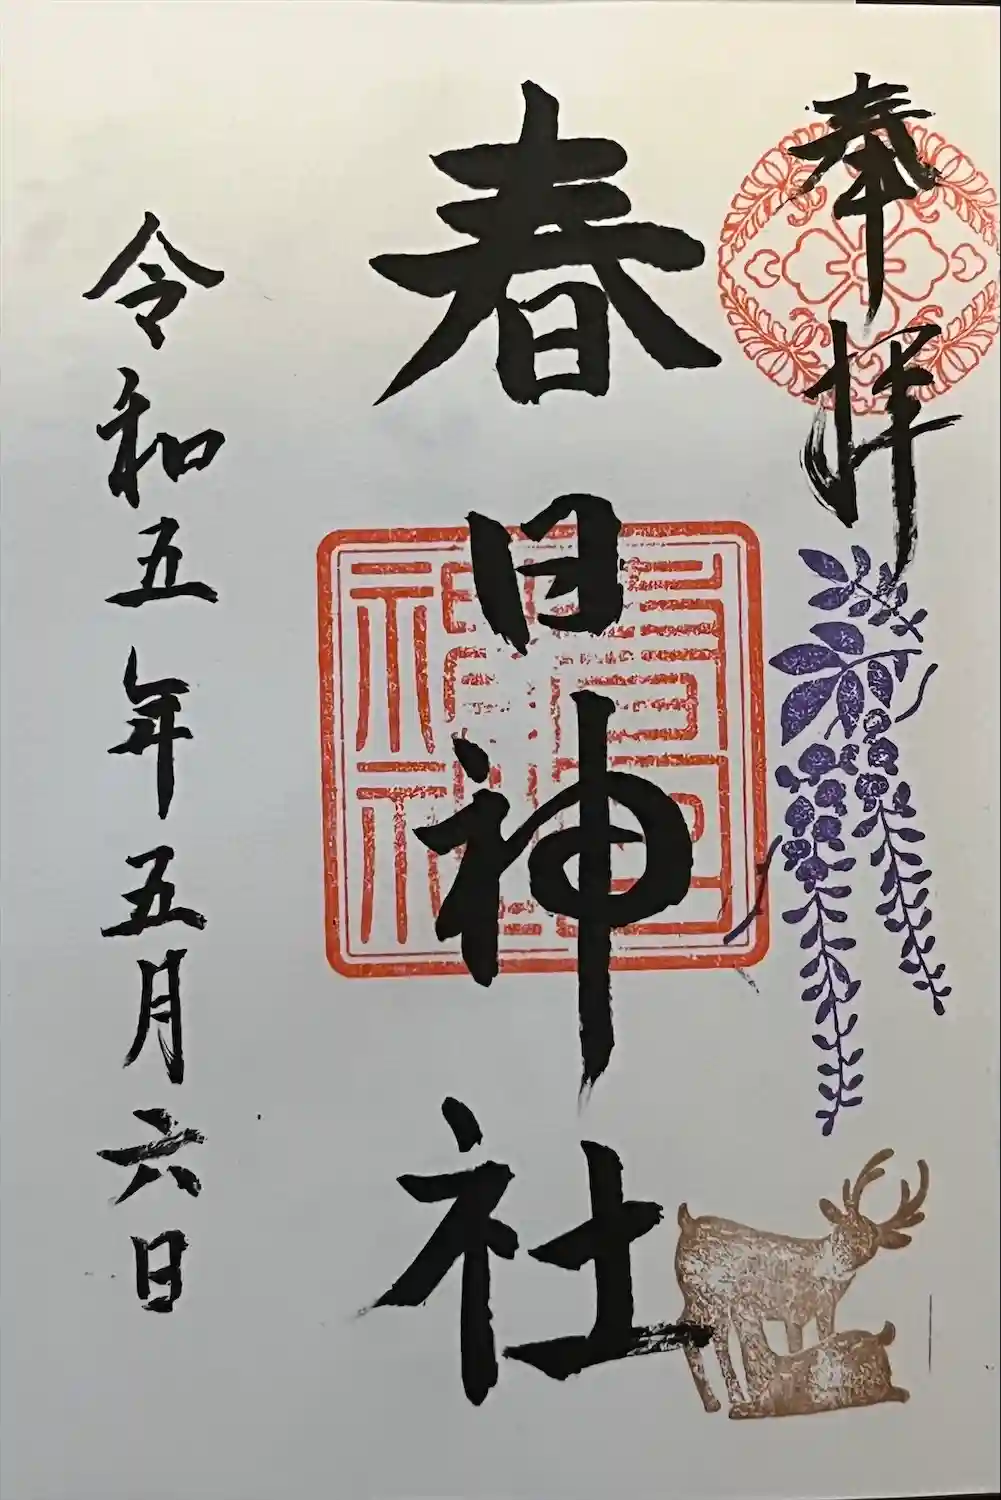 奉拝
春日神社
令和五年五月六日